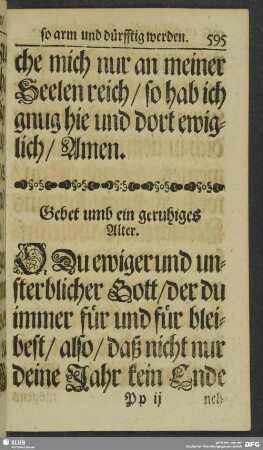 so arm und dürfftig werden. 595
che mich nur an meiner
Seelen reich / so hab ich
gnug hie und dort ewig-
lich / Amen.
Gebet umb ein geruhiges
Alter.
O Du ewiger und un-
sterblicher Gott / der du
immer für und für blei-
best / also / daß nicht nur
deine Jahr kein Ende
Pp ij neh-
SLUB
DFG